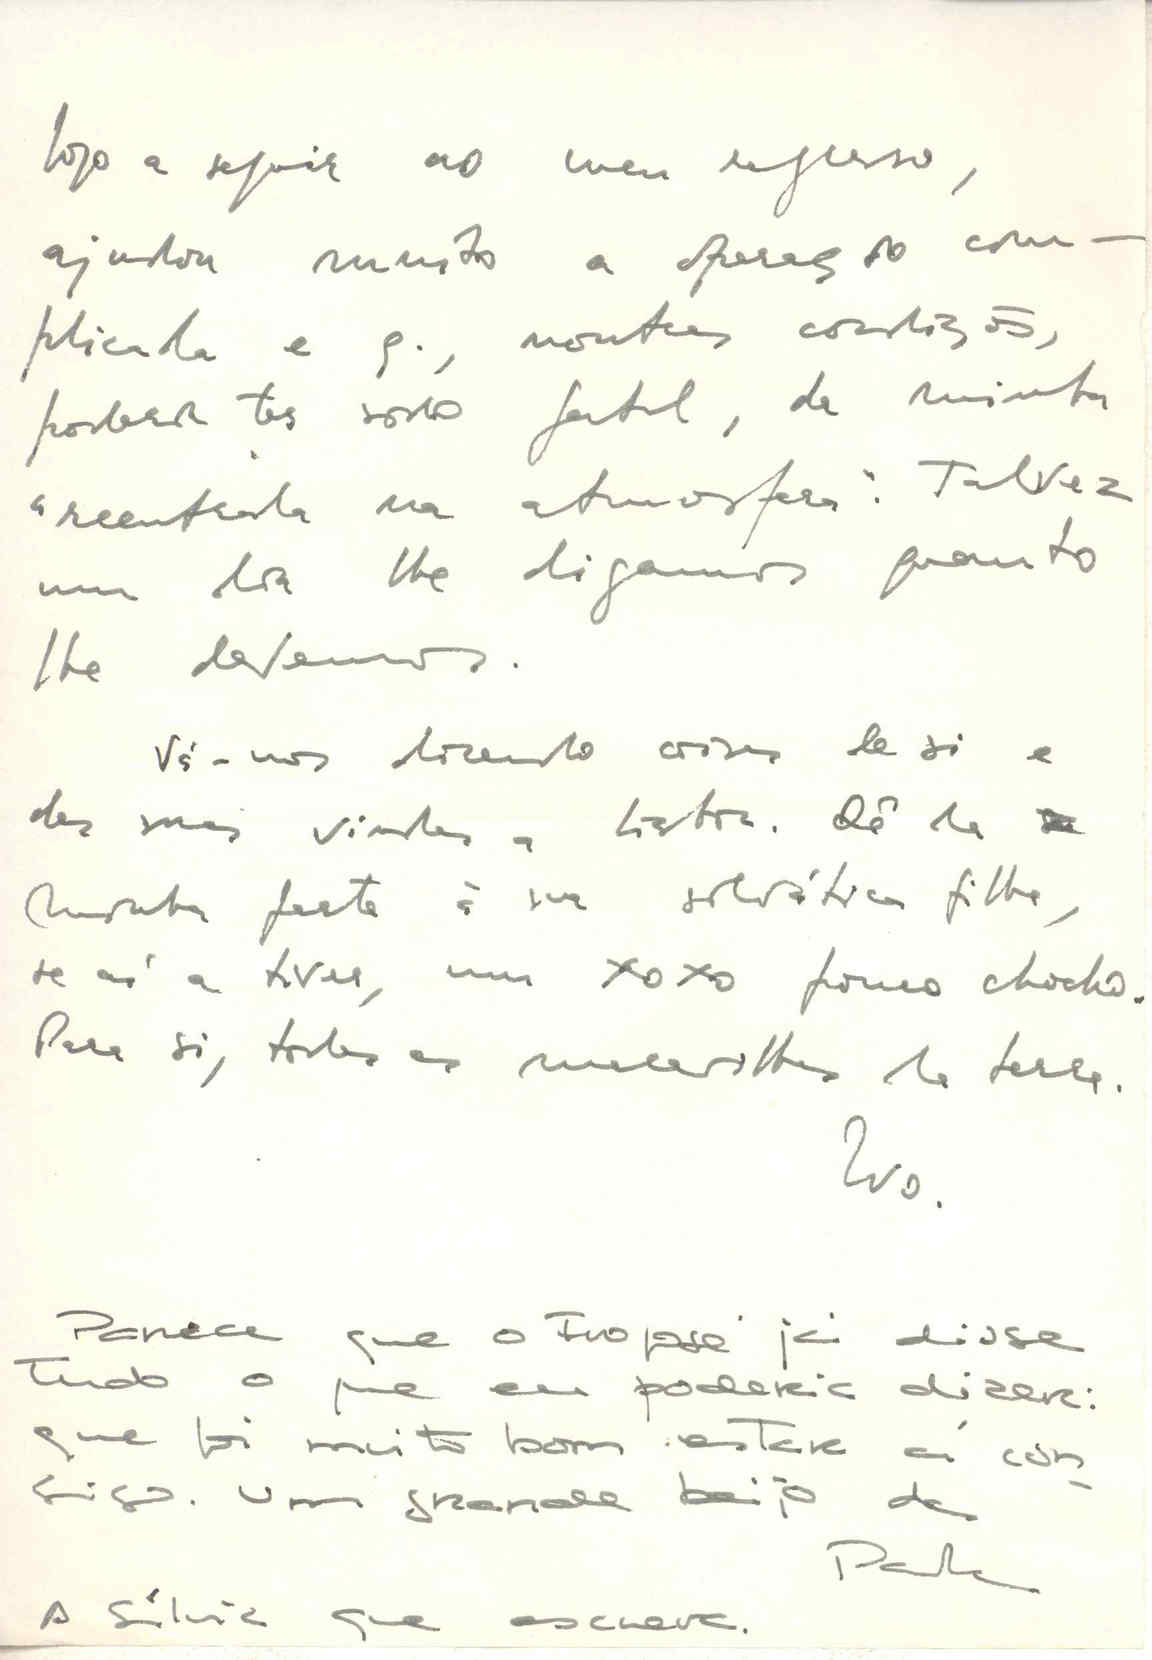 logo a seguir ao meu regresso,
ajudou muito a operação com-
plicada e q., noutras condições,
poderia ter sido fatal, da minha
"reentrada na atmosfera". Talvez
um dia lhe digamos quanto
lhe devemos.
Vá-nos dizendo coisas de si e
das suas vindas a Lisboa. Dê da
minha parte à sua selvática filha,
se aí a tiver, um xoxo pouco chocho.
Para si, todas as maravilhas da terra.
Ivo.
Parece que o Ivo já disse
Tudo o que eu poderia dizer:
que foi muito bom estar aí con-
sigo. Um grande beijo da
Paula
A Sílvia que escreva.